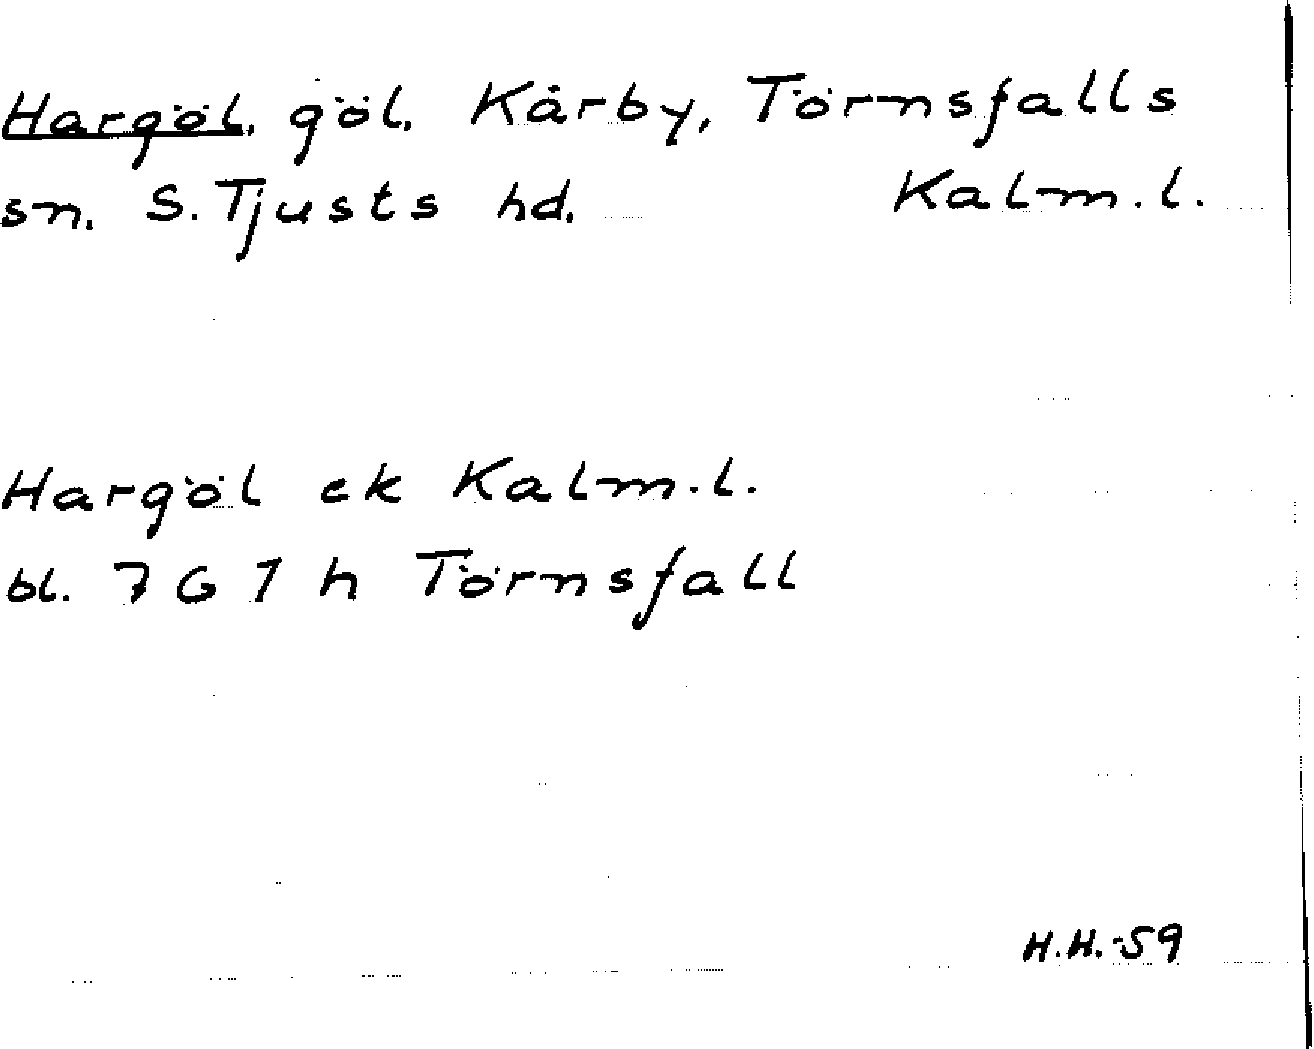 Hargöl, göl, Kårby, Törnsfalls
sn. S. Tjusts hd. Kalm. l.
Hargöl ek Kalm. l.
bl. 7 G 7 h Törnsfall
H.H.-59